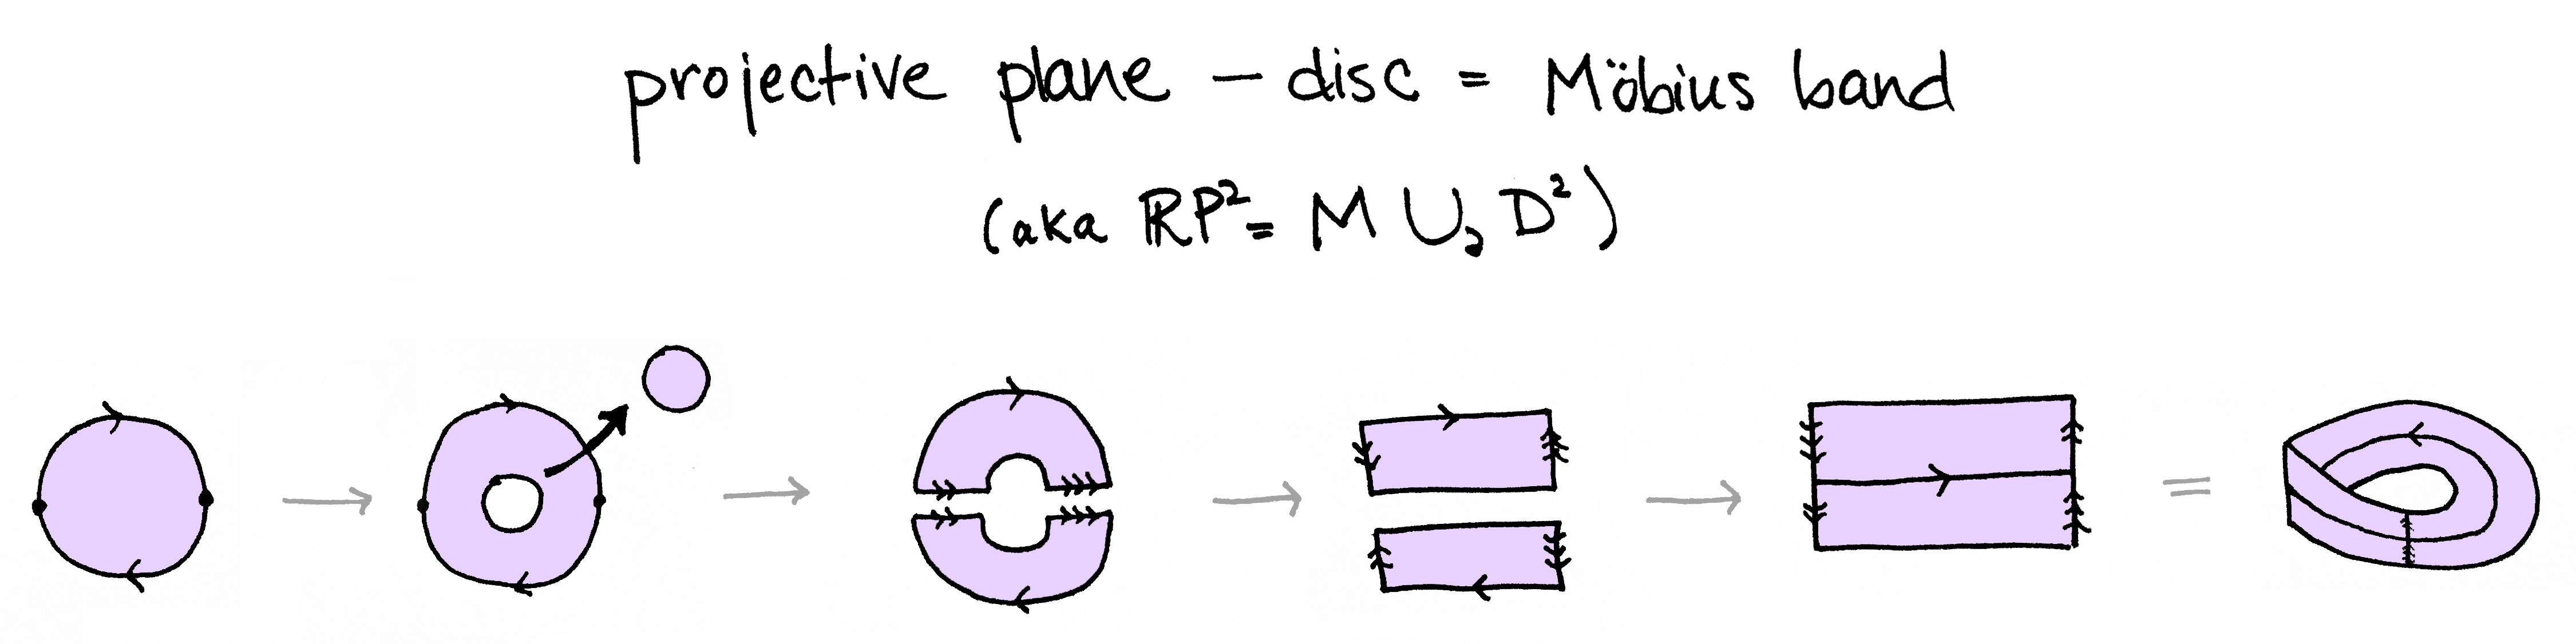 projective plane – disc = Möbius band
(aka ℝP² = M ∪₂ D²)